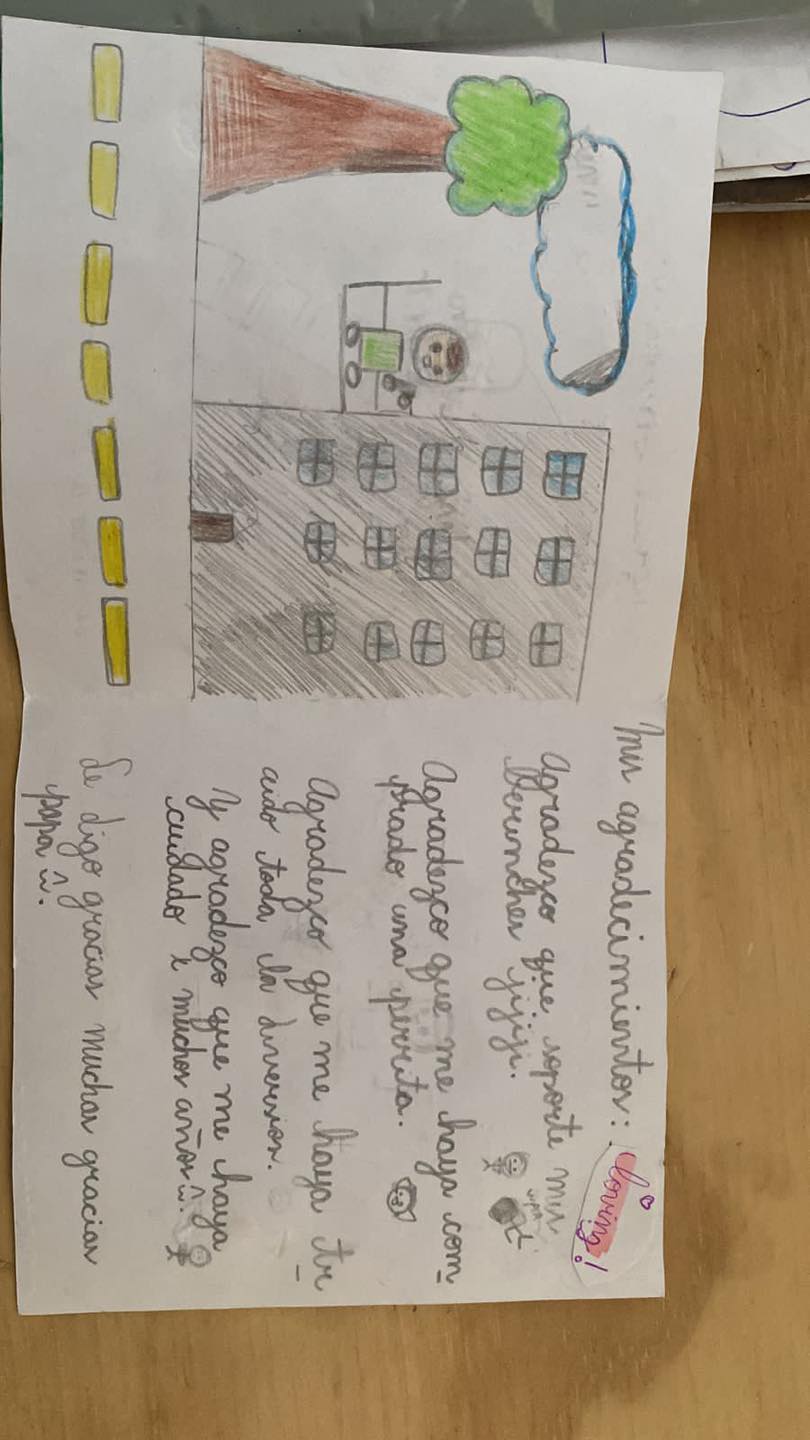 Mis agradecimientos:
loving!
Agradezco que soporte mis
berinches jijiji.
Agradezco que me haya com
prado una perrita.
Agradezco que me haya tr
aido toda la diversion.
Y agradezco que me haya
cuidado x muchos años :).
Le digo gracias muchas gracias
papa :).